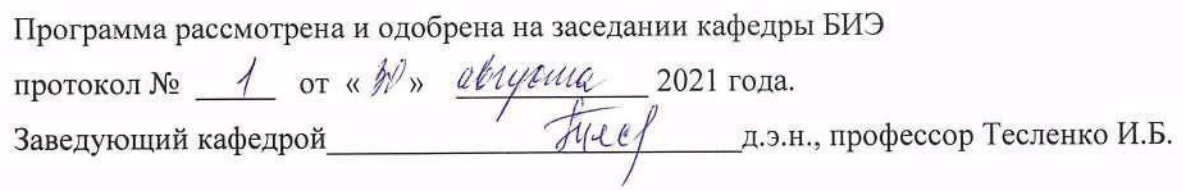 Программа рассмотрена и одобрена на заседании кафедры БИЭ
протокол № 1 от « 30 » августа 2021 года.
Заведующий кафедрой д.э.н., профессор Тесленко И.Б.